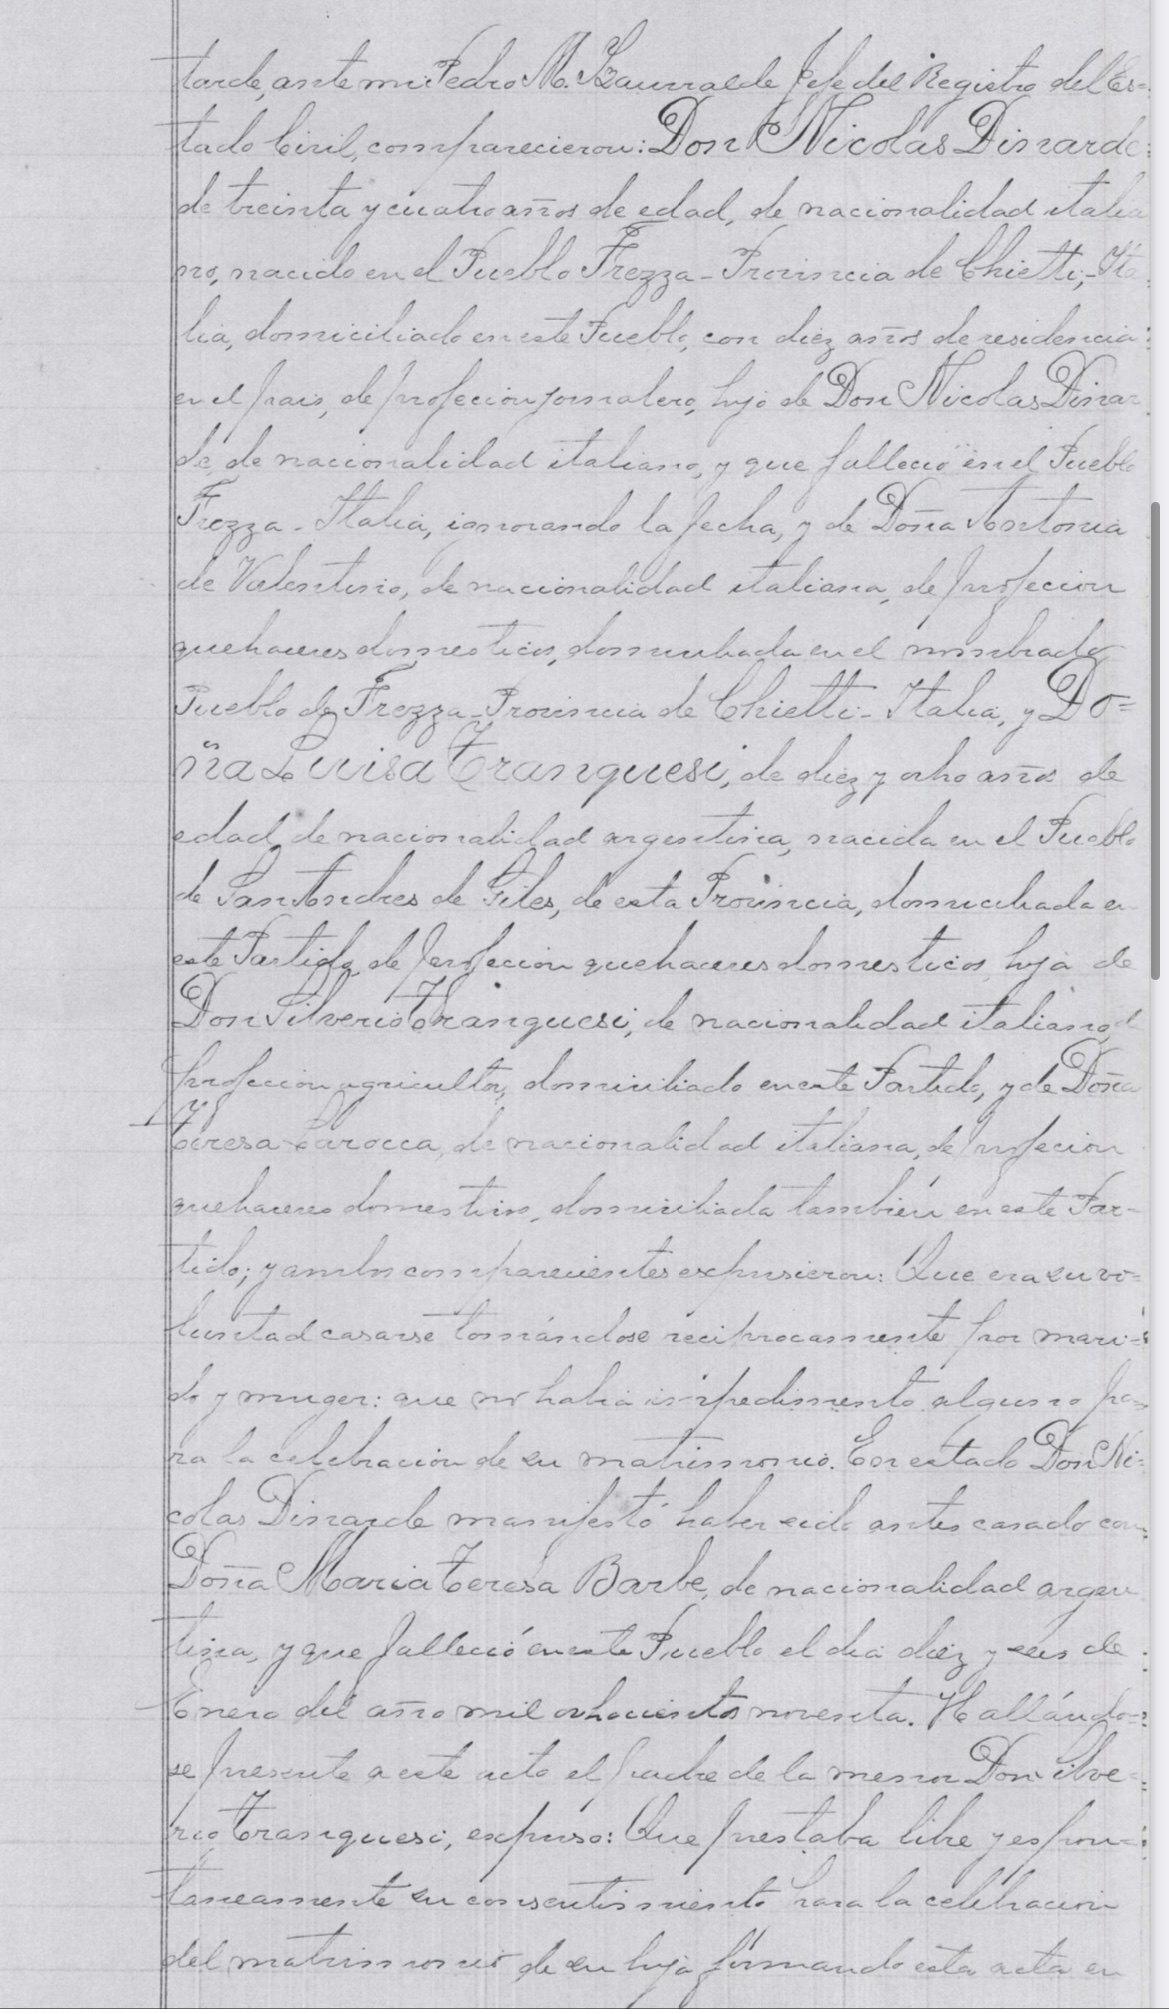 tarde, ante mi Pedro M. Izaurralde Jefe del Registro del Es=
tado Civil, comparecieron: Don Nicolas Dinarde=
de treinta y cuatro años de edad, de nacionalidad italia
no, nacido en el Pueblo Frezza - Provincia de Chietti, - Ita
lia, domiciliado en este Pueblo, con diez años de residencia
en el pais, de profecion jornalero, hijo de Don Nicolas Dinar
de, de nacionalidad italiano, y que fallecio en el Pueblo
Frezza - Italia, ignorando la fecha, y de Doña Antonia
de Valentino, de nacionalidad italiana, de profecion
quehaceres domesticos, domiciliada en el nombrado
Pueblo de Frezza - Provincia de Chietti - Italia, y Do=
ña Luisa Tranquesi, de diez y ocho años de
edad, de nacionalidad argentina, nacida en el Pueblo
de San Andres de Giles, de esta Provincia, domiciliada en
este Partido, de profecion quehaceres domesticos, hija de
Don Silverio Tranquesi, de nacionalidad italiano, d
profecion agricultor, domiciliado en este Partido, y de Doña
Teresa Larocca, de nacionalidad italiana, de profecion
quehaceres domesticos, domiciliada también en este Par-
tido; y ambos comparecientes expusieron: Que era su vo=
luntad casarse tomándose reciprocamente por mari=
do y muger: que no habia impedimento alguno pa=
ra la celebracion de su matrimonio. En estado Don Ni=
colas Dinarde manifestó haber sido antes casado con
Doña Maria Teresa Barbe, de nacionalidad argen
tina, y que falleció en este Pueblo el dia diez y seis de
Enero del año mil ochocientos noventa. Hallándo=
se presente a este acto el padre de la menor Don Silve=
rio Tranquesi, expuso: Que prestaba libre y espon=
taneamente su consentimiento para la celebracion
del matrimonio de su hija firmando esta acta en